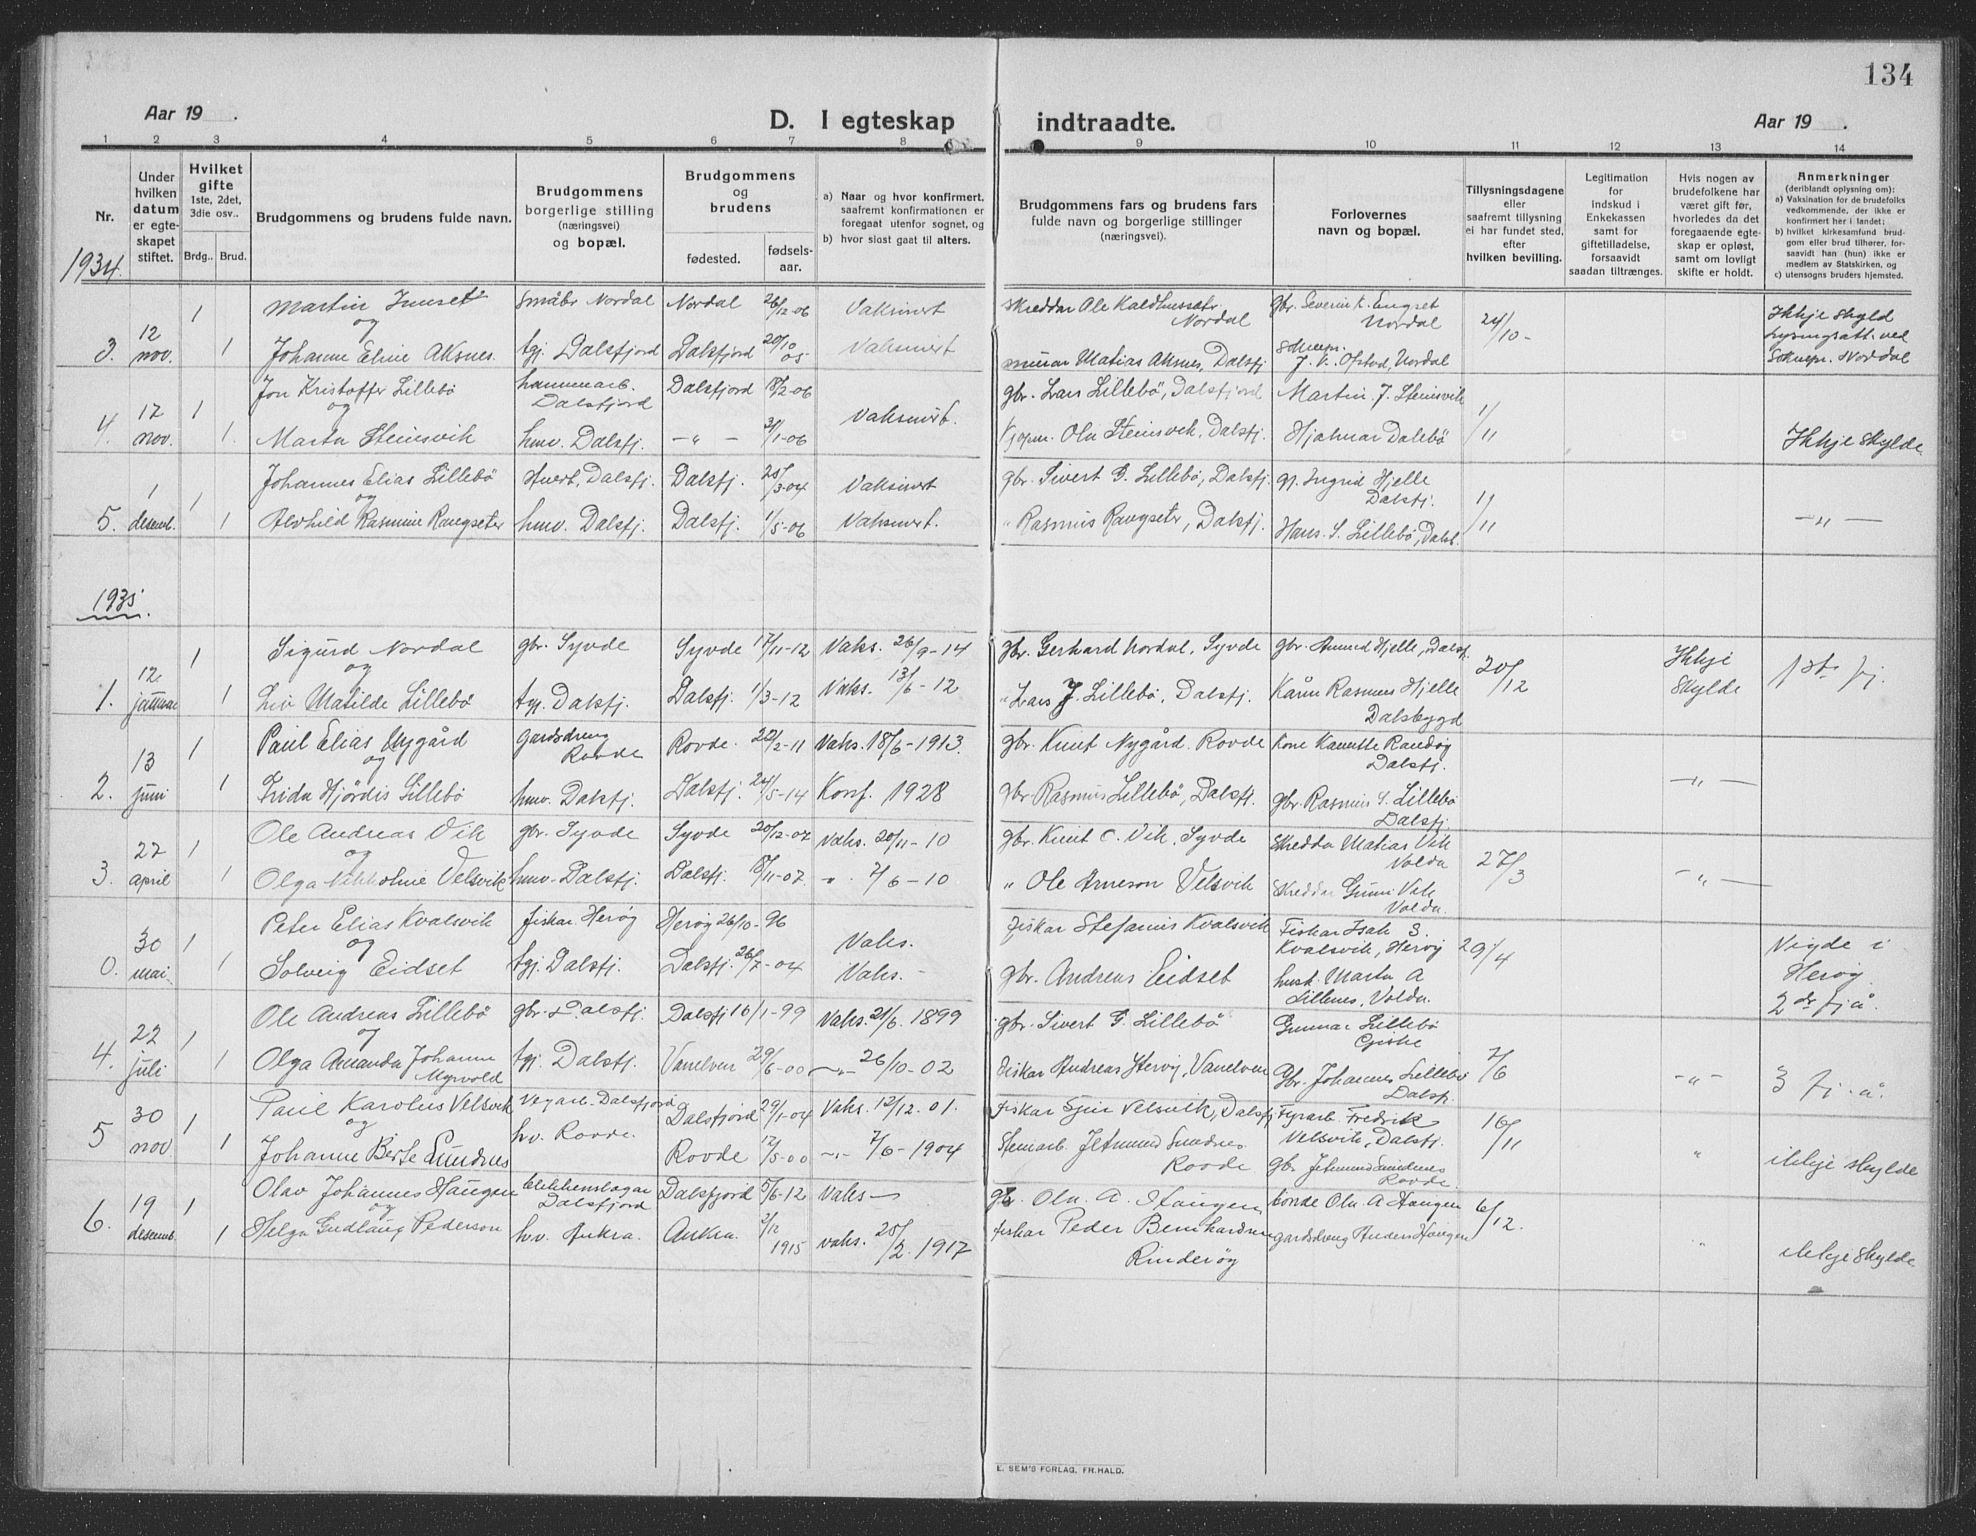 134
Aar 19 .
D. I egteskap indtraadte.
Aar 19 .
1 2 3 4 5 6 7 8 9 10 11 12 13 14
Nr.
Under hvilken datum er egte-skapet stiftet.
Hvilket gifte 1ste, 2det, 3die osv..
Brdg.. Brud.
Brudgommens og brudens fulde navn.
Brudgommens borgerlige stilling (næringsvei) og bopæl.
Brudgommens og brudens
fødested. fødsels-aar.
a) Naar og hvor konfirmert, saafremt konfirmationen er foregaat utenfor sognet, og
b) hvor sidst gaat til alters.
Brudgommens fars og brudens fars fulde navn og borgerlige stillinger (næringsvei).
Forlovernes navn og bopæl.
Tillysningsdagene eller saafremt tillysning ei har fundet sted, efter hvilken bevilling.
Legitimation for indskud i Enkekassen samt for giftetilladelse, forsaavidt saadan tiltrænges.
Hvis nogen av brudefolkene har været gift før, hvorledes da det foregaaende egte-skap er opløst, samt om lovligt skifte er holdt.
Anmerkninger (deriblandt oplysning om):
a) Vaksination for de brudefolks vedkommende, der ikke er konfirmert her i landet;
b) hvilket kirkesamfund brud-gom eller brud tilhører, for-saavidt han (hun) ikke er medlem av Statskirken, og
c) utensogns bruders hjemsted.
1934
1 Martin Småbr Nordal Nordal 26/12-06 Vaksinert skreddar Ole Nordal gbr. Severin K. Engset Nordal 24/10 - Ikkje skyld
og
3. 12 nov. 1 Johanne Eline Aksnes. tgj. Dalsfjord Dalsfjord 20/10 05 Vaksinert murar Matias Aksnes, Dalsfj J. K. Opstad, Nordal Nordal
1 Jon Kristoffer Lillebø Dalsfjord Dalsfjord 18/2-06 gbr. Lars Lillebø, Dalsfjord Martin. J. Steinsvik 1/11
og Vaksinert.
4. 17 nov. 1. Marta Steinsvik hmv. Dalsfj. - " - 21/1-06 Ola Steinsvik, Dalsfj. Hjalmar Dalebø Ikkje skylde
1 Johannes Elias Lillebø Dalsfj. Dalsfj. 25/3-04 Vaksinert gbr. Sivert G. Lillebø, Dalsfj. gj. Ingrid Hjelle Dalsfj. 1/11
og
5. 1 desemb. 1 Alvhild Rasmine Rangseter hmv. Dalsfj. Dalsfj. 1/5-06 Vaksinert. " Rasmus Rangseter, Dalsfj. Hans. S. Lillebø, Dalsf. - " -
1935
1 Sigurd Nordal gbr. Syvde Syvde 17/11-12 Vaks. 26/9-14 gbr. Gerhard Nordal, Syvde gbr. Amund Hjelle, Dalsf. 20/12 Ikkje skylde
og
1. 12. januar 1 Liv Matilde Lillebø tgj. Dalsfj. Dalsfj. 1/3-12 Vaks. 13/6-12 " Lars J. Lillebø, Dalsfj. Kåre Rasmus Hjelle Dalsbygd
1 Paul Elias Nygård gardsdreng Rovde Rovde. 22/2-11 Vaks. 18/6-1913. gbr. Knut Nygård. Rovde Kone Kamille Randøy Dalsfj.
og
2. 13 juni 1 Frida Hjørdis Lillebø hmv. Dalsfj. Dalsfj. 24/5-14 Konf. 1928 gbr Rasmus Lillebø, Dalsfj. gbr. Rasmus S. Lillebø Dalsfj. - " -
1 Ole Andreas Vik gbr. Syvde Syvde 20/12-07 Vaks. 20/11-10 gbr. Knut O. Vik, Syvde Skreddar Matias Vik Volda 27/3
og
3. 27 april 1 Olga Velsvik hmv. Dalsfj. Dalsfj. 8/11-07. " 7/6-10 " Ole Arneson Velsvik Skreddar Vik Volda. - " -
1 Peter Elias Kvalsvik fiskar Herøy Herøy 26/10-96 Vaks. fiskar Stefanus Kvalsvik Fiskar Isak S. Kvalsvik, Herøy 29/4 Vigde i Herøy
og
0. 30 mai 1 Solveig Eidset tgj. Dalsfj. Dalsfj. 26/7-04 Vaks. - gbr. Andreas Eidset husk. Marta A Lillenes, Volda.
1 Ole Andreas Lillebø gbr. Dalsfj. Dalsfj 16/1-99 Vaks. 21/6. 1899 gbr. Sivert G. Lillebø Gunnar Lillebø Giske 2dr fj å.
og
4. 22 juli 1 Olga Amanda Johanne Myrvold tgj. Dalsfj. Vanelven 29/6-00 - " - 26/10-02 Fiskar Andreas Vanelven Gbr. Johannes Lillebø Dalsfj. 7/6 - " - 3 fj. å.
1 Paul Karolus Velsvik Vegarb. Dalsfjord Dalsfjord 29/1-04 Vaks. 12/12. 01. fiskar Velsvik, Dalsfj Fyrarb. Fredrik Velsvik, Dalsfj. 16/11
og
5 30 nov 1 Johanne Berte Sundnes hv. Rovde. Rovde 12/5-00 - " - 7/6-1904 Steinarb. Jetmund Sundnes Rovde gbr. Jetmund Sundnes Rovde. " ikkje skylde
1 Olav Johannes Haugen blikkenslagar Dalsfjord Dalsfjord 5/6-12 Vaks - gb. Ola. A. Haugen bonde Ola A Haugen 6/12.
og
6. 19 desemb. 1 Helga Gudlaug Pederson hv. Aukra. Aukra. 2/12 1915 vaks. 25/2. 1917 fiskar Peder Bernhardsen Rinderøy gardsdreng Anders Haugen " ikkje skylde
E. SEM'S FORLAG, FR.HALD.